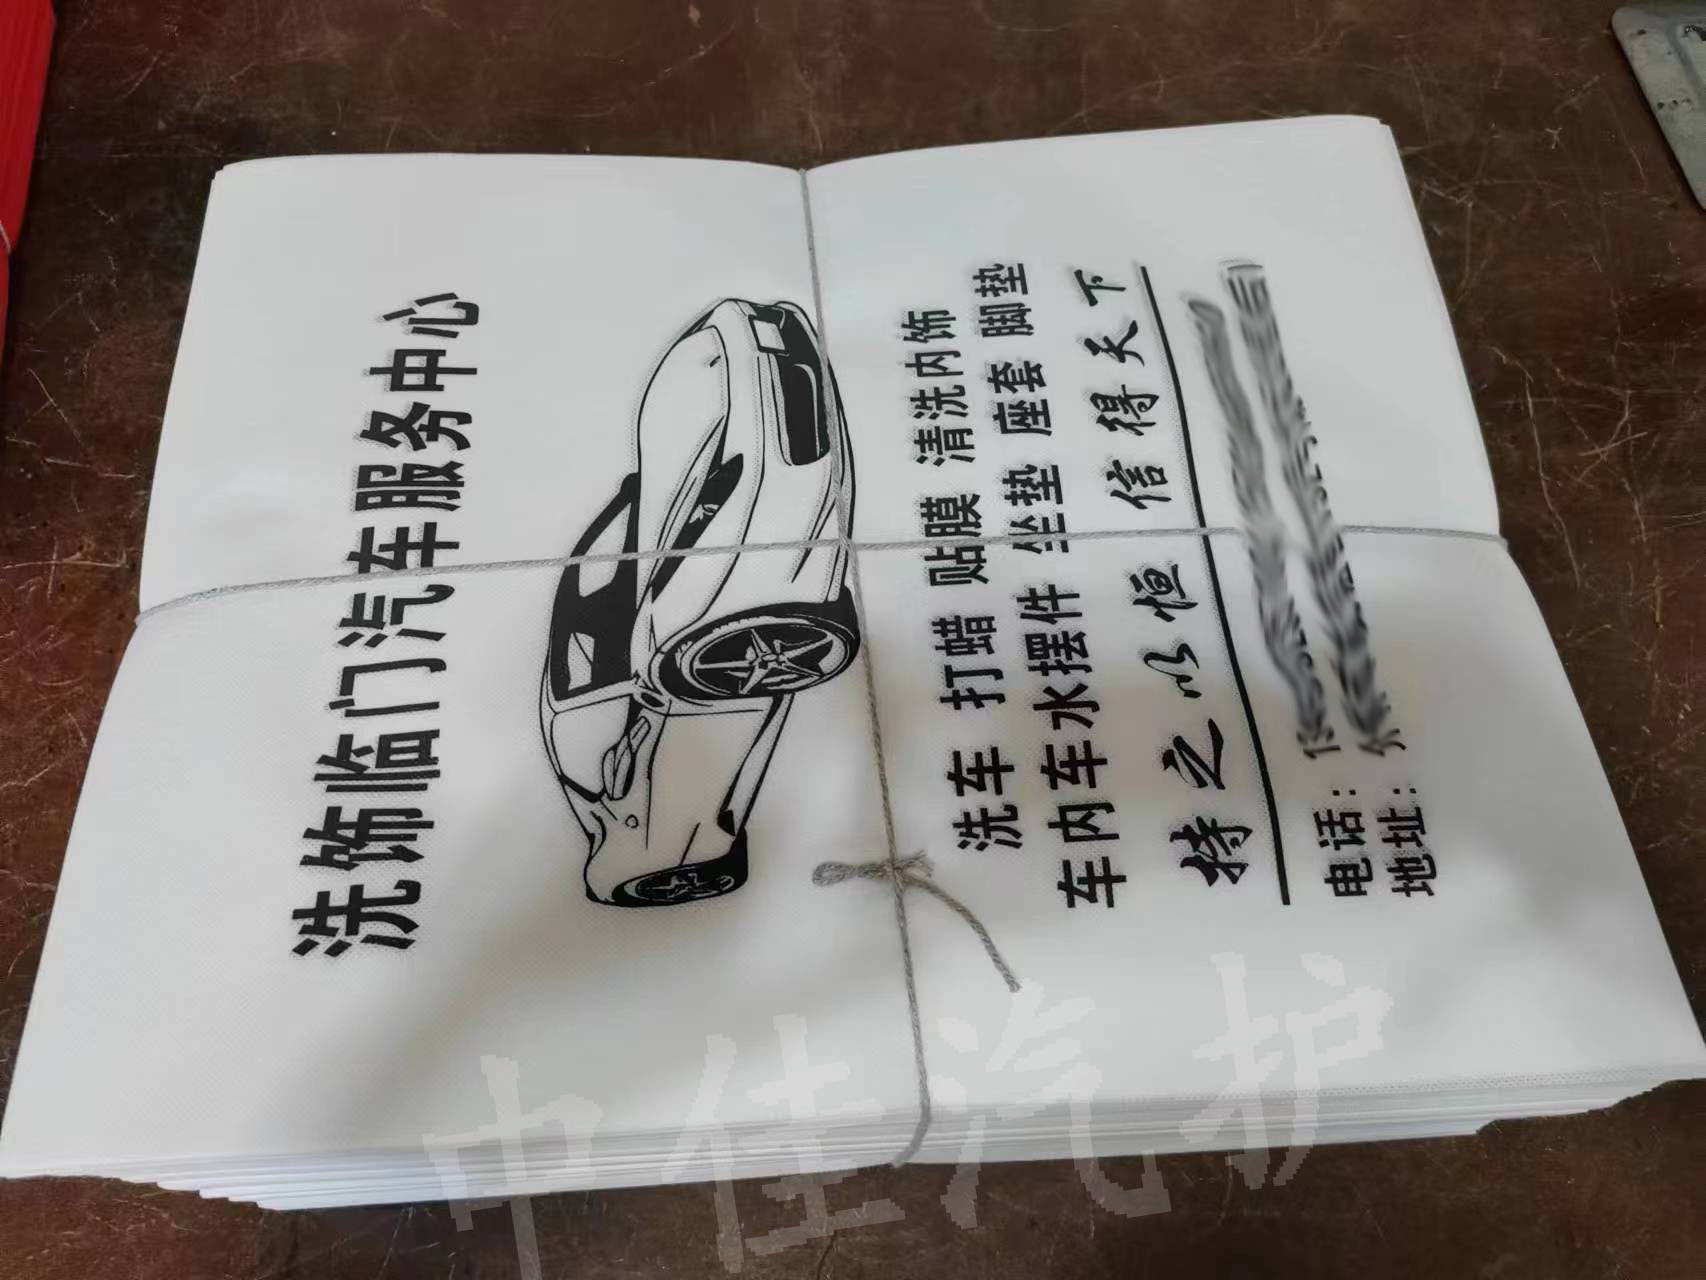 洗饰临门汽车服务中心
洗车 打蜡 贴膜 清洗内饰
车内车水摆件 坐垫 座套 脚垫
持之以恒 信得天下
电话：
地址：
中佳汽护